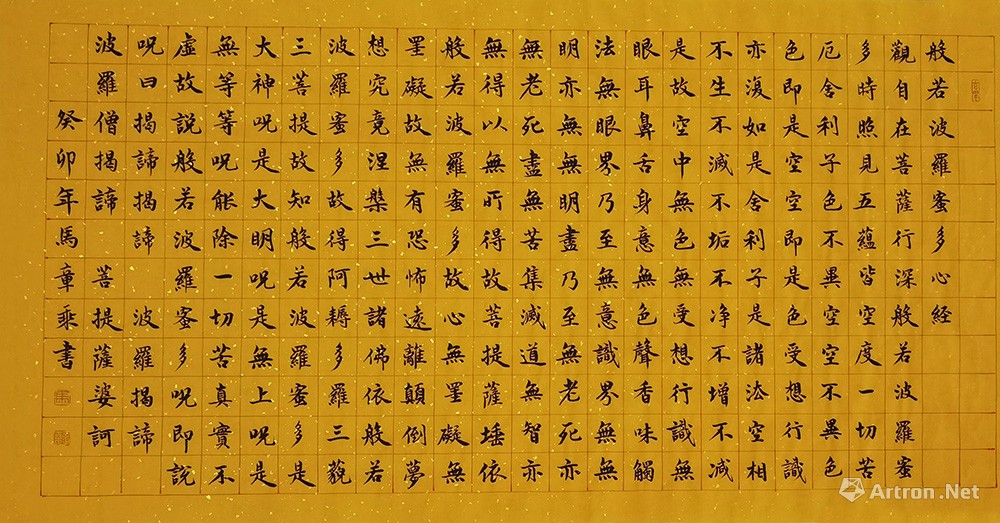 般若波羅蜜多心經
觀自在菩薩行深般若波羅蜜
多時照見五蘊皆空度一切苦
厄舍利子色不異空空不異色
色即是空空即是色受想行識
亦復如是舍利子是諸法空相
不生不滅不垢不净不增不減
是故空中無色無受想行識無
眼耳鼻舌身意無色聲香味觸
法無眼界乃至無意識界無無
明亦無無明盡乃至無老死亦
無老死盡無苦集滅道無智亦
無得以無所得故菩提薩埵依
般若波羅蜜多故心無罣礙無
罣礙故無有恐怖遠離顛倒夢
想究竟涅槃三世諸佛依般若
波羅蜜多故得阿耨多羅三藐
三菩提故知般若波羅蜜多是
大神呪是大明呪是無上呪是
無等等呪能除一切苦真實不
虛故說般若波羅蜜多呪即說
呪曰揭諦揭諦 波羅揭諦
波羅僧揭諦 菩提薩婆訶
癸卯年馬章乘書
Artron.Net